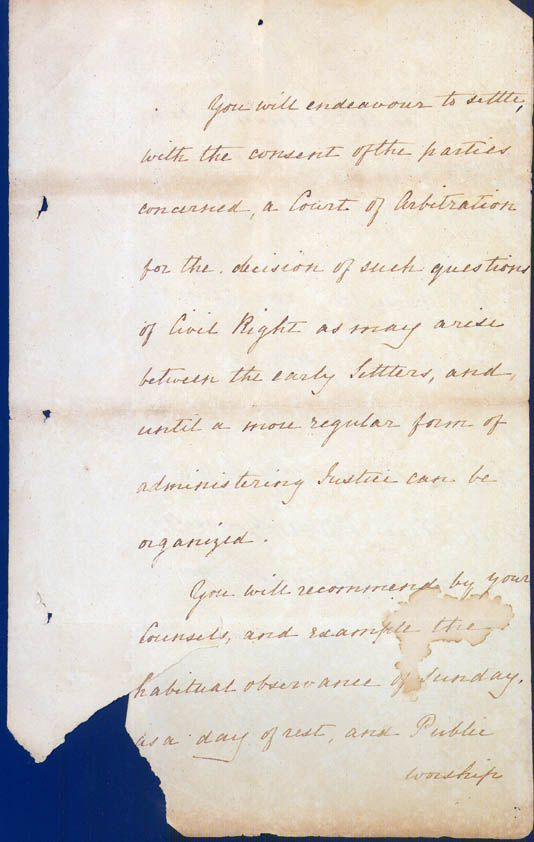 You will endeavour to settle,
with the consent of the parties
concerned, a Court of Arbitration
for the decision of such questions
of Civil Right as may arise
between the early Settlers, and,
until a more regular form of
administering Justice can be
organized.
You will recommend by your
Counsels, and example the
habitual observance of Sunday,
as a day of rest, and Public
worship